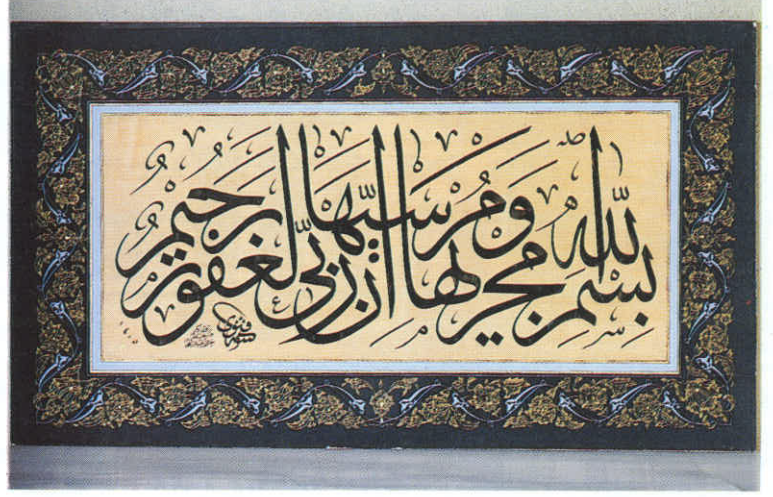 بِسْمِ اللّٰهِ مَجْرٰيهَا وَمُرْسٰيهَا اِنَّ رَبّٖى لَغَفُورٌ رَحٖيمٌ